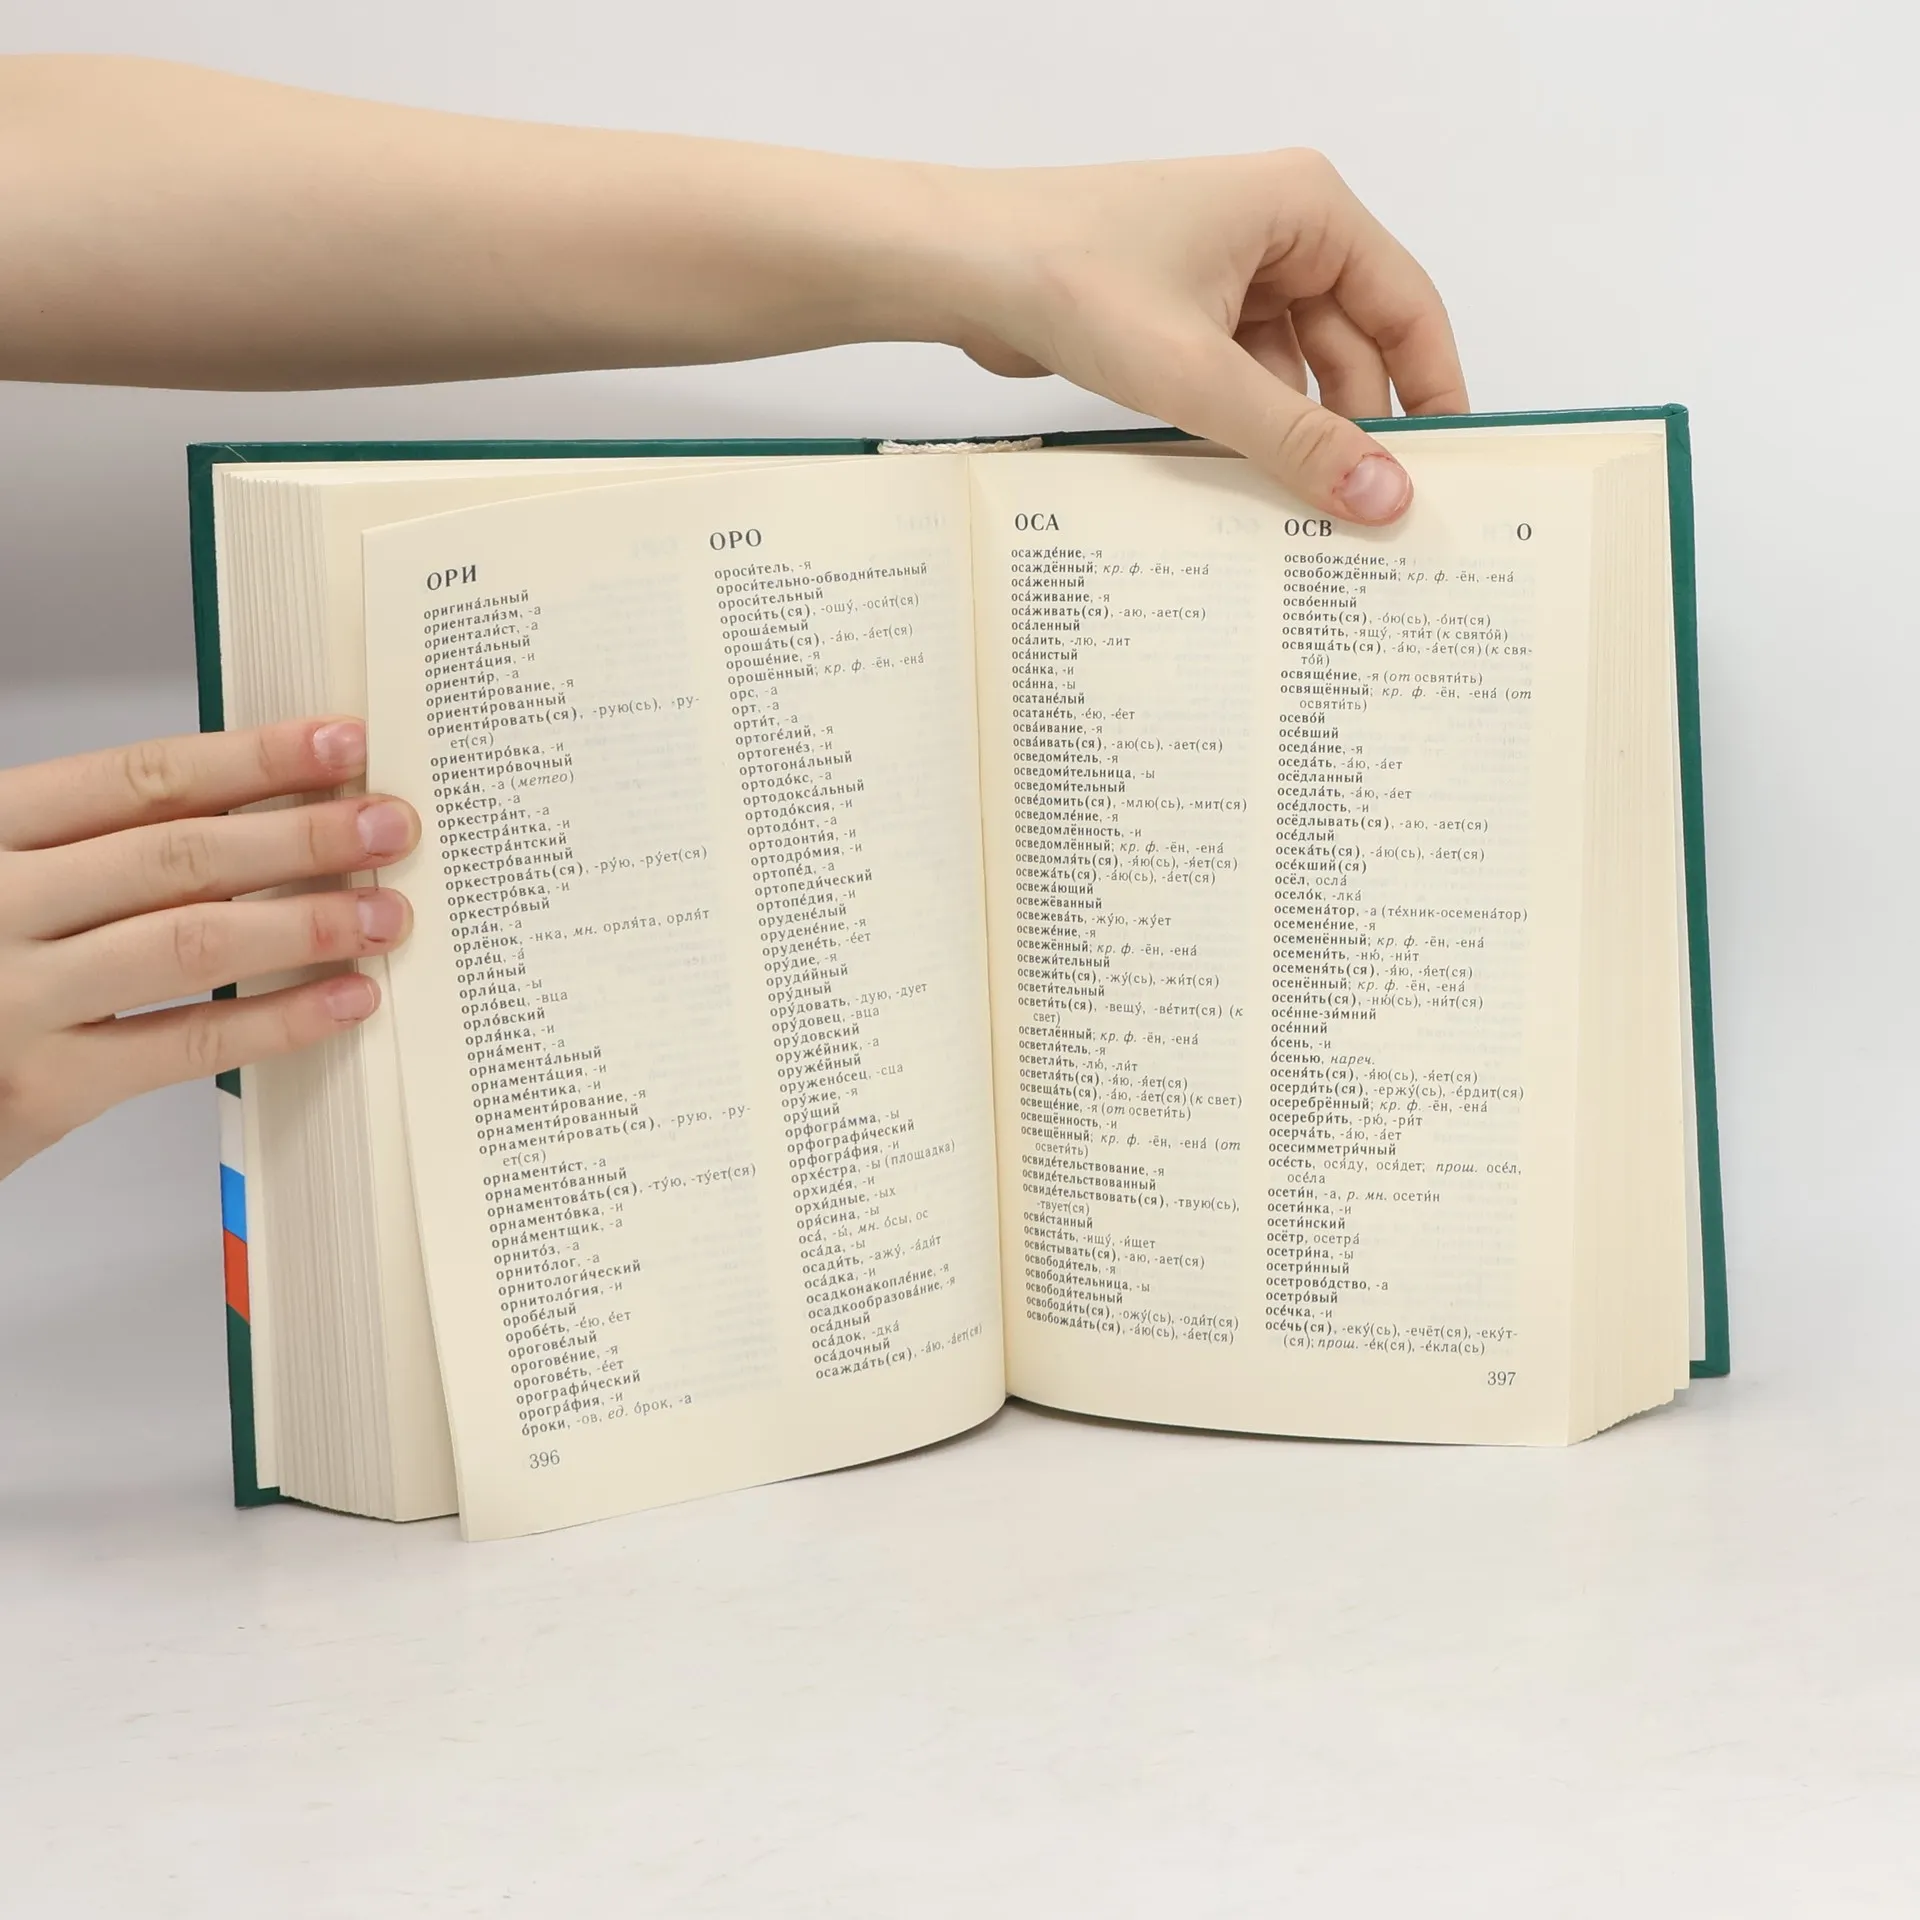 ОРИ
оригина́льный
ориентали́зм, -а
ориентали́ст, -а
ориента́льный
ориента́ция, -и
ориенти́р, -а
ориенти́рование, -я
ориенти́рованный
ориенти́ровать(ся), -рую(сь), -ру-
ет(ся)
ориентиро́вка, -и
ориентиро́вочный
орка́н, -а (метео)
орке́стр, -а
оркестра́нт, -а
оркестра́нтка, -и
оркестра́нтский
оркестро́ванный
оркестрова́ть(ся), -ру́ю, -ру́ет(ся)
оркестро́вка, -и
оркестро́вый
орла́н, -а
орлёнок, -нка, мн. орля́та, орля́т
орле́ц, -а́
орли́ный
орли́ца, -ы
орло́вец, -вца
орло́вский
орля́нка, -и
орна́мент, -а
орнамента́льный
орнамента́ция, -и
орнаме́нтика, -и
орнаменти́рование, -я
орнаменти́рованный
орнаменти́ровать(ся), -рую, -ру-
ет(ся)
орнаменти́ст, -а
орнаменто́ванный
орнаментова́ть(ся), -ту́ю, -ту́ет(ся)
орнаменто́вка, -и
орна́ментщик, -а
орнито́з, -а
орнито́лог, -а
орнитологи́ческий
орнитоло́гия, -и
оробе́лый
оробе́ть, -е́ю, е́ет
орогове́лый
орогове́ние, -я
орогове́ть, -е́ет
орографи́ческий
орогра́фия, -и
о́роки, -ов, ед. о́рок, -а
396
ОРО
ороси́тель, -я
ороси́тельно-обводни́тельный
ороси́тельный
ороси́ть(ся), -ошу́, -оси́т(ся)
ороша́емый
ороша́ть(ся), -а́ю, -а́ет(ся)
ороше́ние, -я
орошённый; кр. ф. -ён, -ена́
орс, -а
орт, -а
орти́т, -а
ортоге́лий, -я
ортогене́з, -и
ортогона́льный
ортодо́кс, -а
ортодокса́льный
ортодо́ксия, -и
ортодо́нт, -а
ортодонти́я, -и
ортодро́мия, -и
ортопе́д, -а
ортопеди́ческий
ортопе́дия, -и
орудене́лый
орудене́ние, -я
орудене́ть, -е́ет
ору́дие, -я
оруди́йный
ору́дный
ору́довать, -дую, -дует
ору́довец, -вца
ору́довский
оруже́йник, -а
оруже́йный
оружено́сец, -сца
ору́жие, -я
ору́щий
орфогра́мма, -ы
орфографи́ческий
орфогра́фия, -и
орхе́стра, -ы (площадка)
орхиде́я, -и
орхи́дные, -ых
оря́сина, -ы
оса́, -ы́, мн. о́сы, ос
оса́да, -ы
осади́ть, -ажу́, -а́дит
оса́дка, -и
осадконакопле́ние, -я
осадкообразова́ние, -я
оса́дный
оса́док, -дка
оса́дочный
осажда́ть(ся), -а́ю, -а́ет(ся)
ОСА
осажде́ние, -я
осаждённый; кр. ф. -ён, -ена́
оса́женный
оса́живание, -я
оса́живать(ся), -аю, -ает(ся)
оса́ленный
оса́лить, -лю, -лит
оса́нистый
оса́нка, -и
оса́нна, -ы
осатане́лый
осатане́ть, -е́ю, -е́ет
осва́ивание, -я
осва́ивать(ся), -аю(сь), -ает(ся)
осведоми́тель, -я
осведоми́тельница, -ы
осведоми́тельный
осве́домить(ся), -млю(сь), -мит(ся)
осведомле́ние, -я
осведомлённость, -и
осведомлённый; кр. ф. -ён, -ена́
осведомля́ть(ся), -я́ю(сь), -я́ет(ся)
освежа́ть(ся), -а́ю(сь), -а́ет(ся)
освежа́ющий
освежёванный
освежева́ть, -жу́ю, -жу́ет
освеже́ние, -я
освежённый; кр. ф. -ён, -ена́
освежи́тельный
освежи́ть(ся), -жу́(сь), -жи́т(ся)
освети́тельный
освети́ть(ся), -вещу́, -ве́тит(ся) (к
свет)
осветлённый; кр. ф. -ён, -ена́
осветли́тель, -я
осветли́ть, -лю́, -ли́т
осветля́ть(ся), -я́ю, -я́ет(ся)
освеща́ть(ся), -а́ю, -а́ет(ся) (к свет)
освеще́ние, -я (от освети́ть)
освещённость, -и
освещённый; кр. ф. -ён, -ена́ (от
освети́ть)
освиде́тельствование, -я
освиде́тельствованный
освиде́тельствовать(ся), -твую(сь),
-твует(ся)
осви́станный
освиста́ть, -ищу́, -и́щет
осви́стывать(ся), -аю, -ает(ся)
освободи́тель, -я
освободи́тельница, -ы
освободи́тельный
освободи́ть(ся), -ожу́(сь), -оди́т(ся)
освобожда́ть(ся), -а́ю(сь), -а́ет(ся)
ОСВ
О
освобожде́ние, -я
освобождённый; кр. ф. -ён, -ена́
освое́ние, -я
осво́енный
осво́ить(ся), -о́ю(сь), -о́ит(ся)
освяти́ть, -ящу́, -яти́т (к свято́й)
освяща́ть(ся), -а́ю, -а́ет(ся) (к свя-
то́й)
освяще́ние, -я (от освяти́ть)
освящённый; кр. ф. -ён, -ена́ (от
освяти́ть)
осево́й
осе́вший
оседа́ние, -я
оседа́ть, -а́ю, -а́ет
осёдланный
оседла́ть, -а́ю, -а́ет
осе́длость, -и
осёдлывать(ся), -аю, -ает(ся)
осе́длый
осека́ть(ся), -а́ю(сь), -а́ет(ся)
осе́кший(ся)
осёл, осла́
осело́к, -лка́
осемена́тор, -а (те́хник-осемена́тор)
осемене́ние, -я
осеменённый; кр. ф. -ён, -ена́
осемени́ть, -ню́, -ни́т
осеменя́ть(ся), -я́ю, -я́ет(ся)
осенённый; кр. ф. -ён, -ена́
осени́ть(ся), -ню́(сь), -ни́т(ся)
осе́нне-зи́мний
осе́нний
о́сень, -и
о́сенью, нареч.
осеня́ть(ся), -я́ю(сь), -я́ет(ся)
осерди́ть(ся), -ержу́(сь), -е́рдит(ся)
осеребрённый; кр. ф. -ён, -ена́
осеребри́ть, -рю́, -ри́т
осерча́ть, -а́ю, -а́ет
осесимметри́чный
осе́сть, ося́ду, ося́дет; прош. осе́л,
осе́ла
осети́н, -а, р. мн. осети́н
осети́нка, -и
осети́нский
осётр, осетра́
осетри́на, -ы
осетри́нный
осетрово́дство, -а
осетро́вый
осе́чка, -и
осе́чь(ся), -еку́(сь), -ечёт(ся), -еку́т-
(ся); прош. -е́к(ся), -е́кла(сь)
397